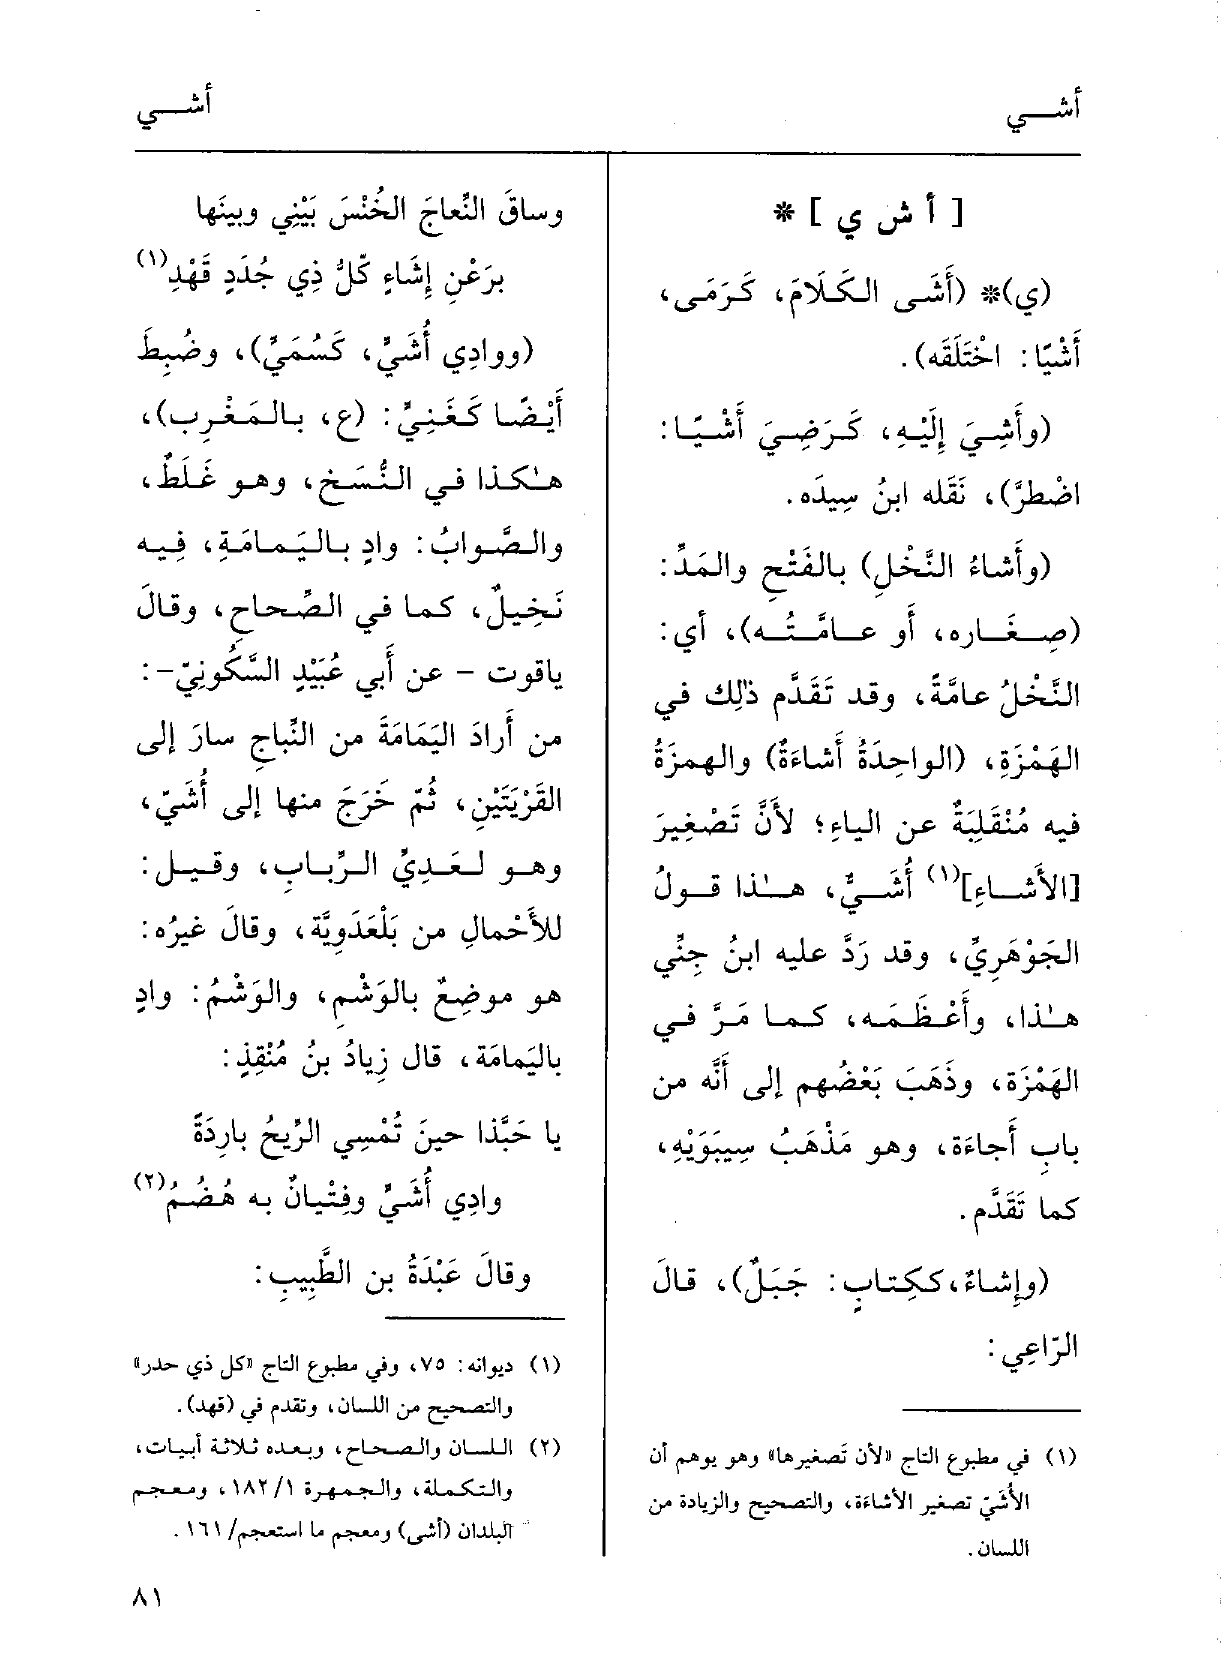 أشــي
أشــي
[ أ ش ي ] *
(ي)* (أَشَى الكَلَامَ، كَرَمَى،
أَشْيًا: اخْتَلَقَه).
(وأَشِيَ إِلَيْهِ، كَرَضِيَ أَشْيًا:
اضْطرَّ)، نَقَله ابنُ سِيدَه.
(وأَشاءُ النَّخْلِ) بالفَتْحِ والمَدِّ:
(صِغَاره، أو عامَّتُه)، أي:
النَّخْلُ عامَّةً، وقد تَقَدَّم ذٰلِك في
الهَمْزَةِ، (الواحِدَةُ أَشاءَةٌ) والهمزَةُ
فيه مُنْقَلِبَةٌ عن الياءِ؛ لأنَّ تَصْغِيرَ
[الأَشاءِ](١) أُشَيٌّ، هٰذا قولُ
الجَوْهَرِيِّ، وقد رَدَّ عليه ابنُ جِنِّي
هٰذا، وأَعْظَمَه، كما مَرَّ في
الهَمْزَة، وذَهَبَ بَعْضُهم إلى أنَّه من
بابِ أَجاءَة، وهو مَذْهَبُ سِيبَوَيْهِ،
كما تَقَدَّم.
(وإِشاءٌ، ككِتابٍ: جَبَلٌ)، قالَ
الرّاعِي:
(١) في مطبوع التاج «لأن تَصغيرها» وهو يوهم أن
الأُشَيّ تصغير الأشاءَة، والتصحيح والزيادة من
اللسان.
وساقَ النِّعاجَ الخُنْسَ بَيْنِي وبينَها
برَعْنِ إِشَاءٍ كُلُّ ذِي جُدَدٍ قَهْدِ(١)
(ووادِي أُشَيٍّ، كَسُمَيٍّ)، وضُبِطَ
أَيْضًا كَغَنِيٍّ: (ع، بالمَغْرِب)،
هٰكذا في النُّسَخ، وهو غَلَطٌ،
والصَّوابُ: وادٍ باليَمامَةِ، فِيه
نَخِيلٌ، كما في الصِّحاح، وقالَ
ياقوت - عن أَبي عُبَيْدٍ السَّكُونِيّ-:
من أَرادَ اليَمَامَةَ من النِّباجِ سارَ إلى
القَرْيَتَيْنِ، ثُمّ خَرَجَ منها إلى أُشَيّ،
وهو لعَدِيِّ الرِّبابِ، وقيل:
للأَحْمالِ من بَلْعَدَوِيَّة، وقالَ غيرُه:
هو موضِعٌ بالوَشْمِ، والوَشْمُ: وادٍ
باليَمامَة، قال زِيادُ بنُ مُنْقِذٍ:
يا حَبَّذا حينَ تُمْسِي الرِّيحُ بارِدَةً
وادِي أُشَيٍّ وفِتْيانٌ به هُضُمُ(٢)
وقالَ عَبْدَةُ بن الطَّبِيبِ:
(١) ديوانه: ٧٥، وفي مطبوع التاج «كل ذي حدر»
والتصحيح من اللسان، وتقدم في (قهد).
(٢) اللسان والصحاح، وبعده ثلاثة أبيات،
والتكملة، والجمهرة ١٨٢/١، ومعجم
البلدان (أشى) ومعجم ما استعجم/١٦١.
٨١